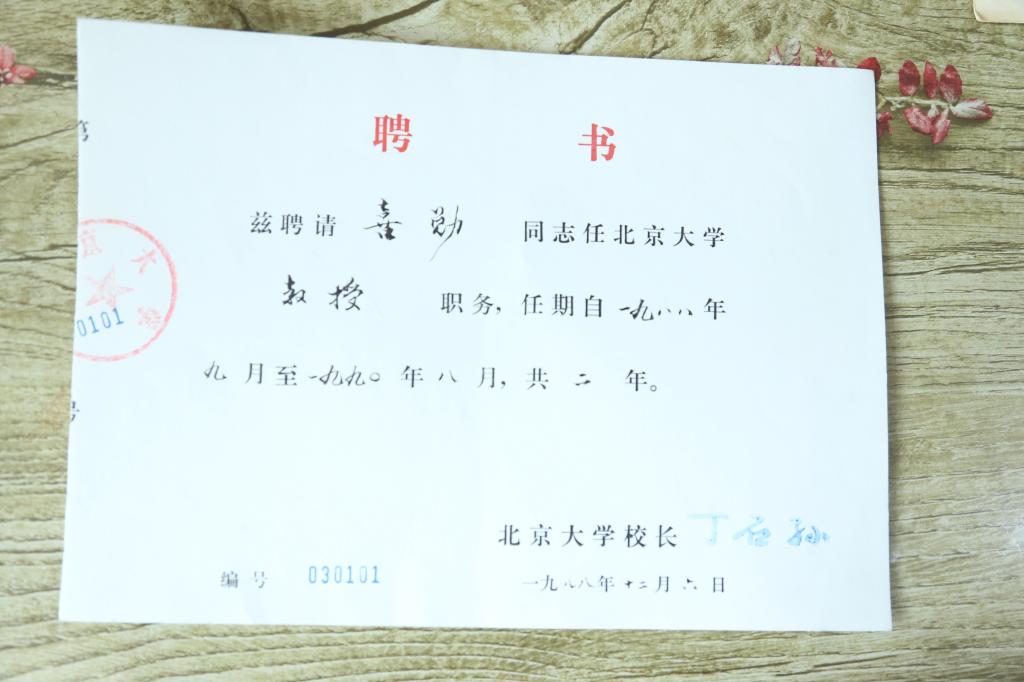 聘 书
兹聘请 喜勋 同志任北京大学
教授 职务，任期自一九八八年
九月至一九九〇年八月，共二年。
北京大学校长 丁石孙
编号 030101
一九八八年十二月六日
京大学
0101
号